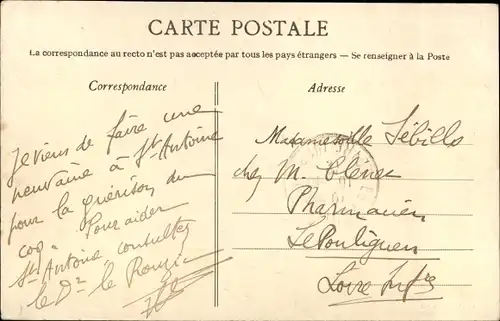 CARTE POSTALE
La correspondance au recto n'est pas acceptée par tous les pays étrangers — Se renseigner à la Poste
Correspondance
Adresse
Je viens de faire une
neuvaine à St Antoine
pour la guérison du
Pour aider
St Antoine consultez
le Dr le
Mademoiselle Sébillo
chez M.
Pharmacien
Le Pouliguen
Loire Infre